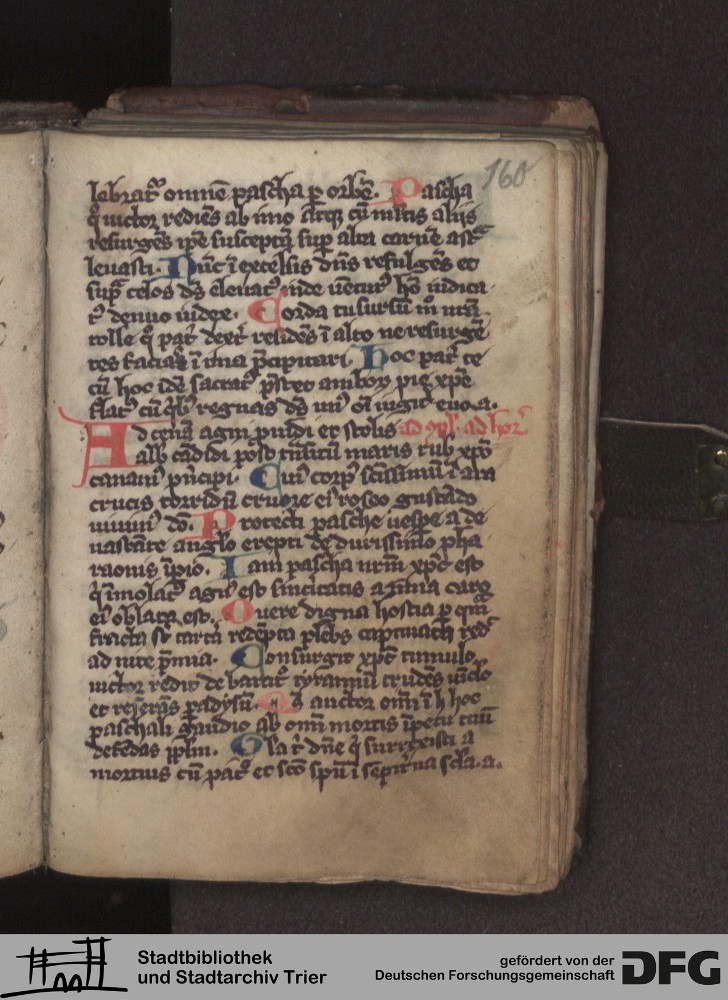 160
lebrat᷑ omnē pascha ꝑ orbē. Pascha
qͥ uictor rediēs ab imo atqꝫ cū ml̄tis aliis
resurgēs ip̄e susceptā sup̄ alta carnē ast᷑
leuasti. Nūc ī excelsis dn̄s refulgēs et
sup̄ celos dꝰ eleuatꝰ inde uētuꝰ hō iudica
tꝰ denuo iudex. Corda tu sursū m̊ nr̄a
tolle qͦ patͥ dext᷑ residēs ī alto ne resurgē
tes facias ī ima p̄cipitari. Hoc pat᷑ te
cū hoc idē sacrat᷑ p̄stet amboꝝ pie xp̄e
flatꝰ cū qͥbꝰ regnas dꝰ unꝰ oī iugit᷑ euo. a.
Ad cenā agni ꝓuidi et stolis
alb̄ cādidi post trāsitū maris rub̄ xp̄o
canamꝰ pͥncipi. Cuiꝰ corpꝰ sc̄issimū ī ara
crucis torridū cruore eiꝰ roseo gustādo
uiuimꝰ dō. Protecti pasche uesꝑe a de
uastāte angl̓o erepti de durissimo pha
raonis īpio. Iam pascha nr̄m xp̄c est
qͥ īmolatꝰ agnꝰ est sinc̄itatis azima caro
eiꝰ oblata est. O uere digna hostia ꝑ quā
fracta sūt tartā redēpta plebs captiuata red᷑
ad uite p̄mia. Consurgit xp̄c tumulo
uictor redit de baratͦ tyrannū trudēs uīclo
et reserās ꝑadysū. Qs auctor om̄ ī h̄ hoc
paschali gaudio ab om̄i mortis īpetu tuū
defēdas ppl̄m. Gl̓a t᷑ dn̄e qͥ surrexisti a
mortuis cū pat᷑ et sc̄o spū ī sēpit᷑na sc̄la. a.
Stadtbibliothek
und Stadtarchiv Trier
gefördert von der
Deutschen Forschungsgemeinschaft
DFG